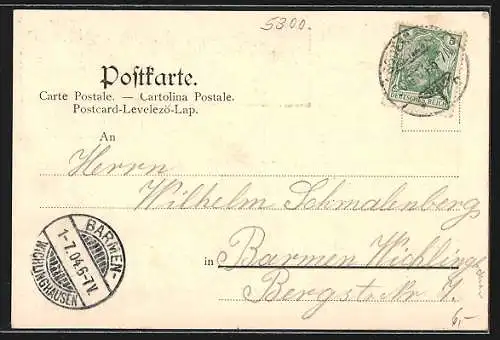 5300.
DEUTSCHES REICH
Postkarte.
Carte Postale. — Cartolina Postale.
Postcard-Levelező-Lap.
An
Herrn
Wilhelm Schmalenberg
in Barmen Wichlinghausen
Bergst. Nr. 4.
BARMEN-
1-7.04.6-7V.
WICHLINGHAUSEN
6,-